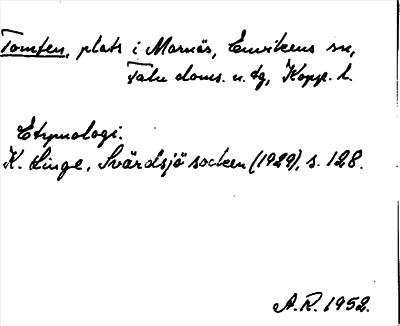 Tomten, plats i Marnäs, Envikens sn,
Falu doms. n. tg, Kopp. l.
Etymologi.
K. Linge, Svärdsjö socken (1929), s. 128.
A.R. 1952.